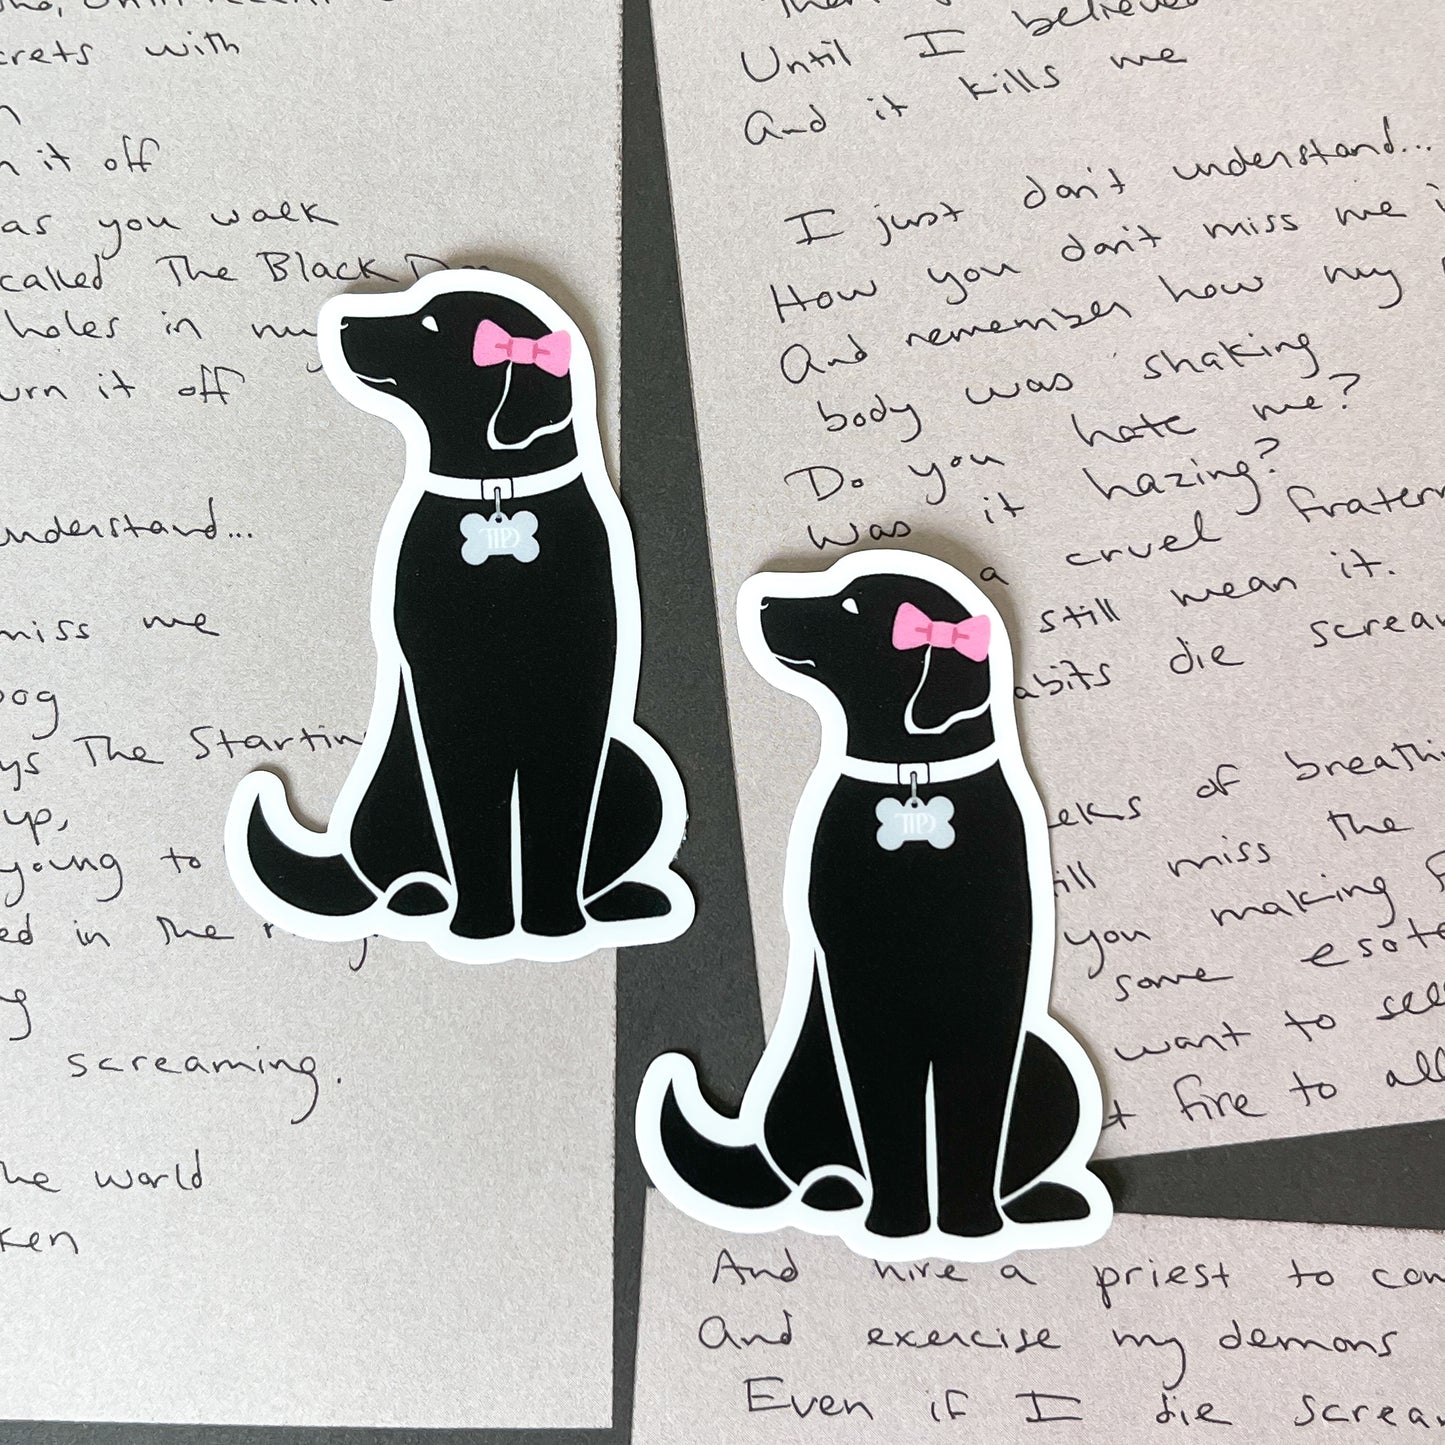 crets with
it off
as you walk
called The Black
holes in my
urn it off
understand...
miss me
og
ys The Startin
up,
young to
ed in the
screaming.
he world
ken
Until I believed
And it kills me
I just don't understand...
How you don't miss me i
And remember how my
body was shaking
Do you hate me?
Was it hazing?
a cruel fratern
still mean it.
abits die screa
eeks of breathi
ill miss the
you making f
some esote
want to sell
t fire to all
And hire a priest to com
And exercise my demons
Even if I die screa
TTPD
TTPD